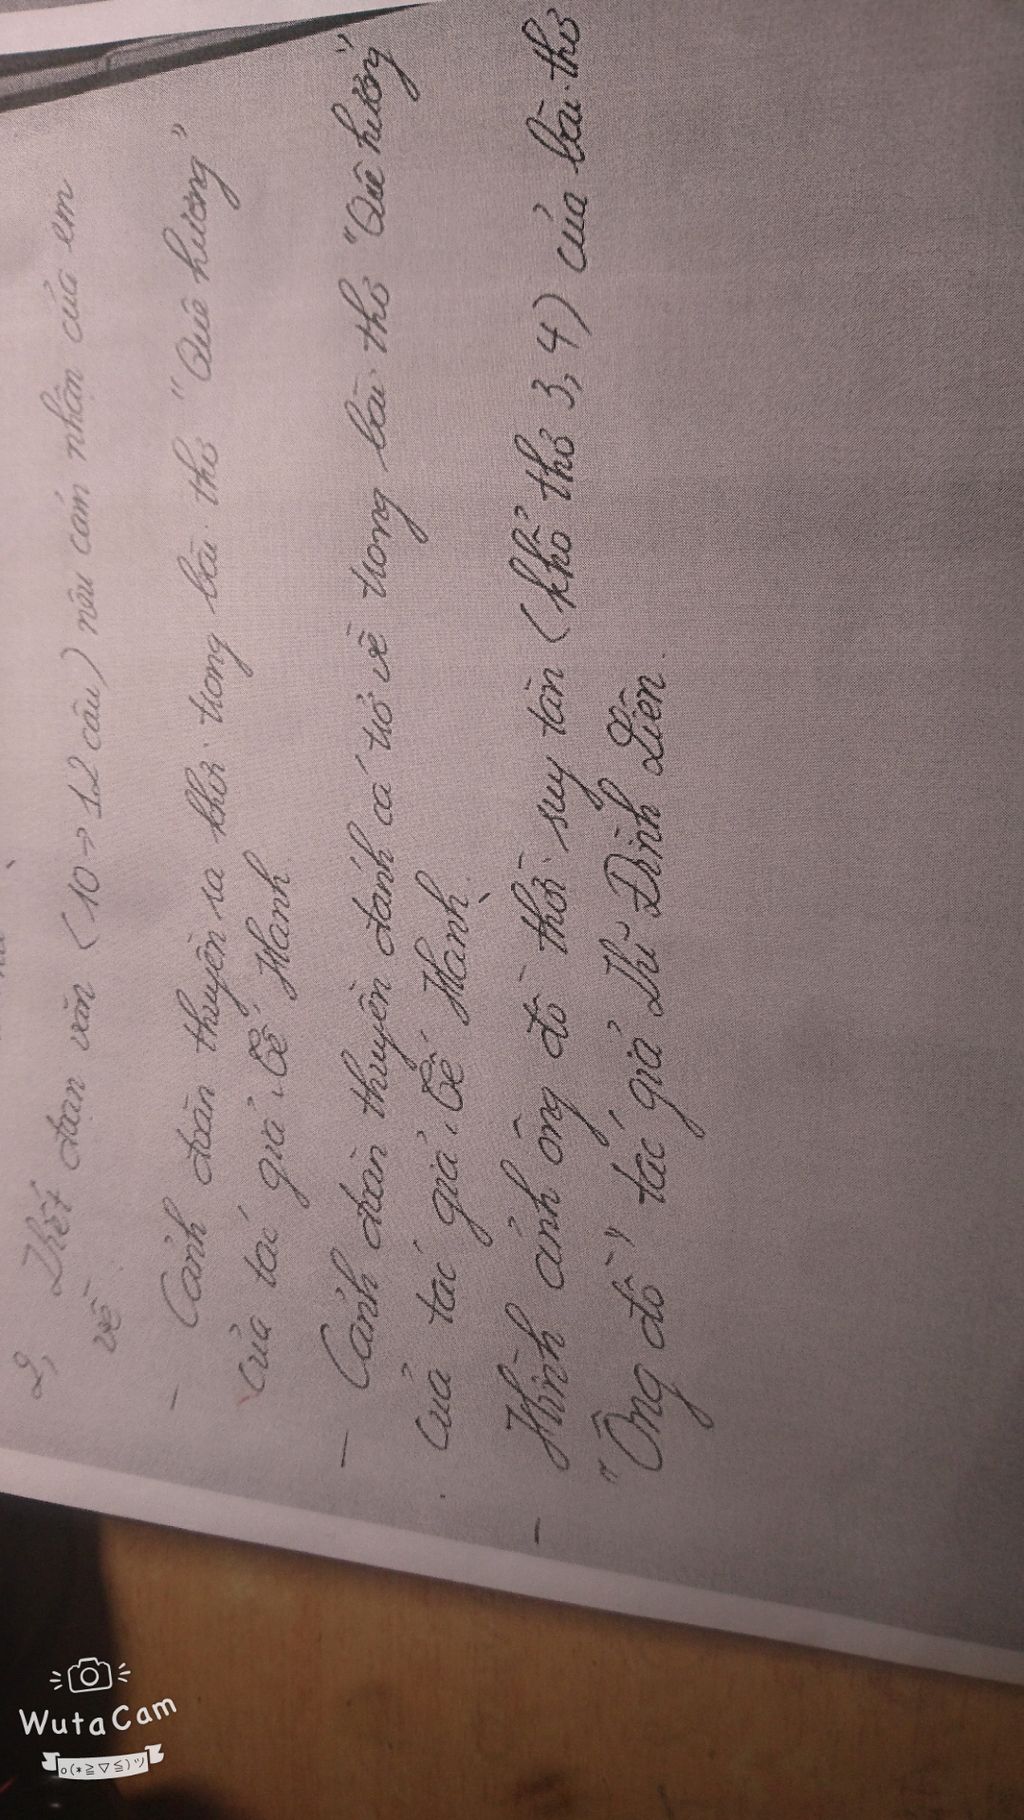 2, Viết đoạn văn (10 → 12 câu) nêu cảm nhận của em
về
- Cảnh đoàn thuyền ra khơi trong bài thơ "Quê hương"
của tác giả Tế Hanh
- Cảnh đoàn thuyền đánh cá trở về trong bài thơ "Quê hương"
của tác giả Tế Hanh
- Hình ảnh ông đồ thời suy tàn (khổ thơ 3, 4) của bài thơ
"Ông đồ" tác giả Vũ Đình Liên.
WutaCam
o(*≧▽≦)ツ